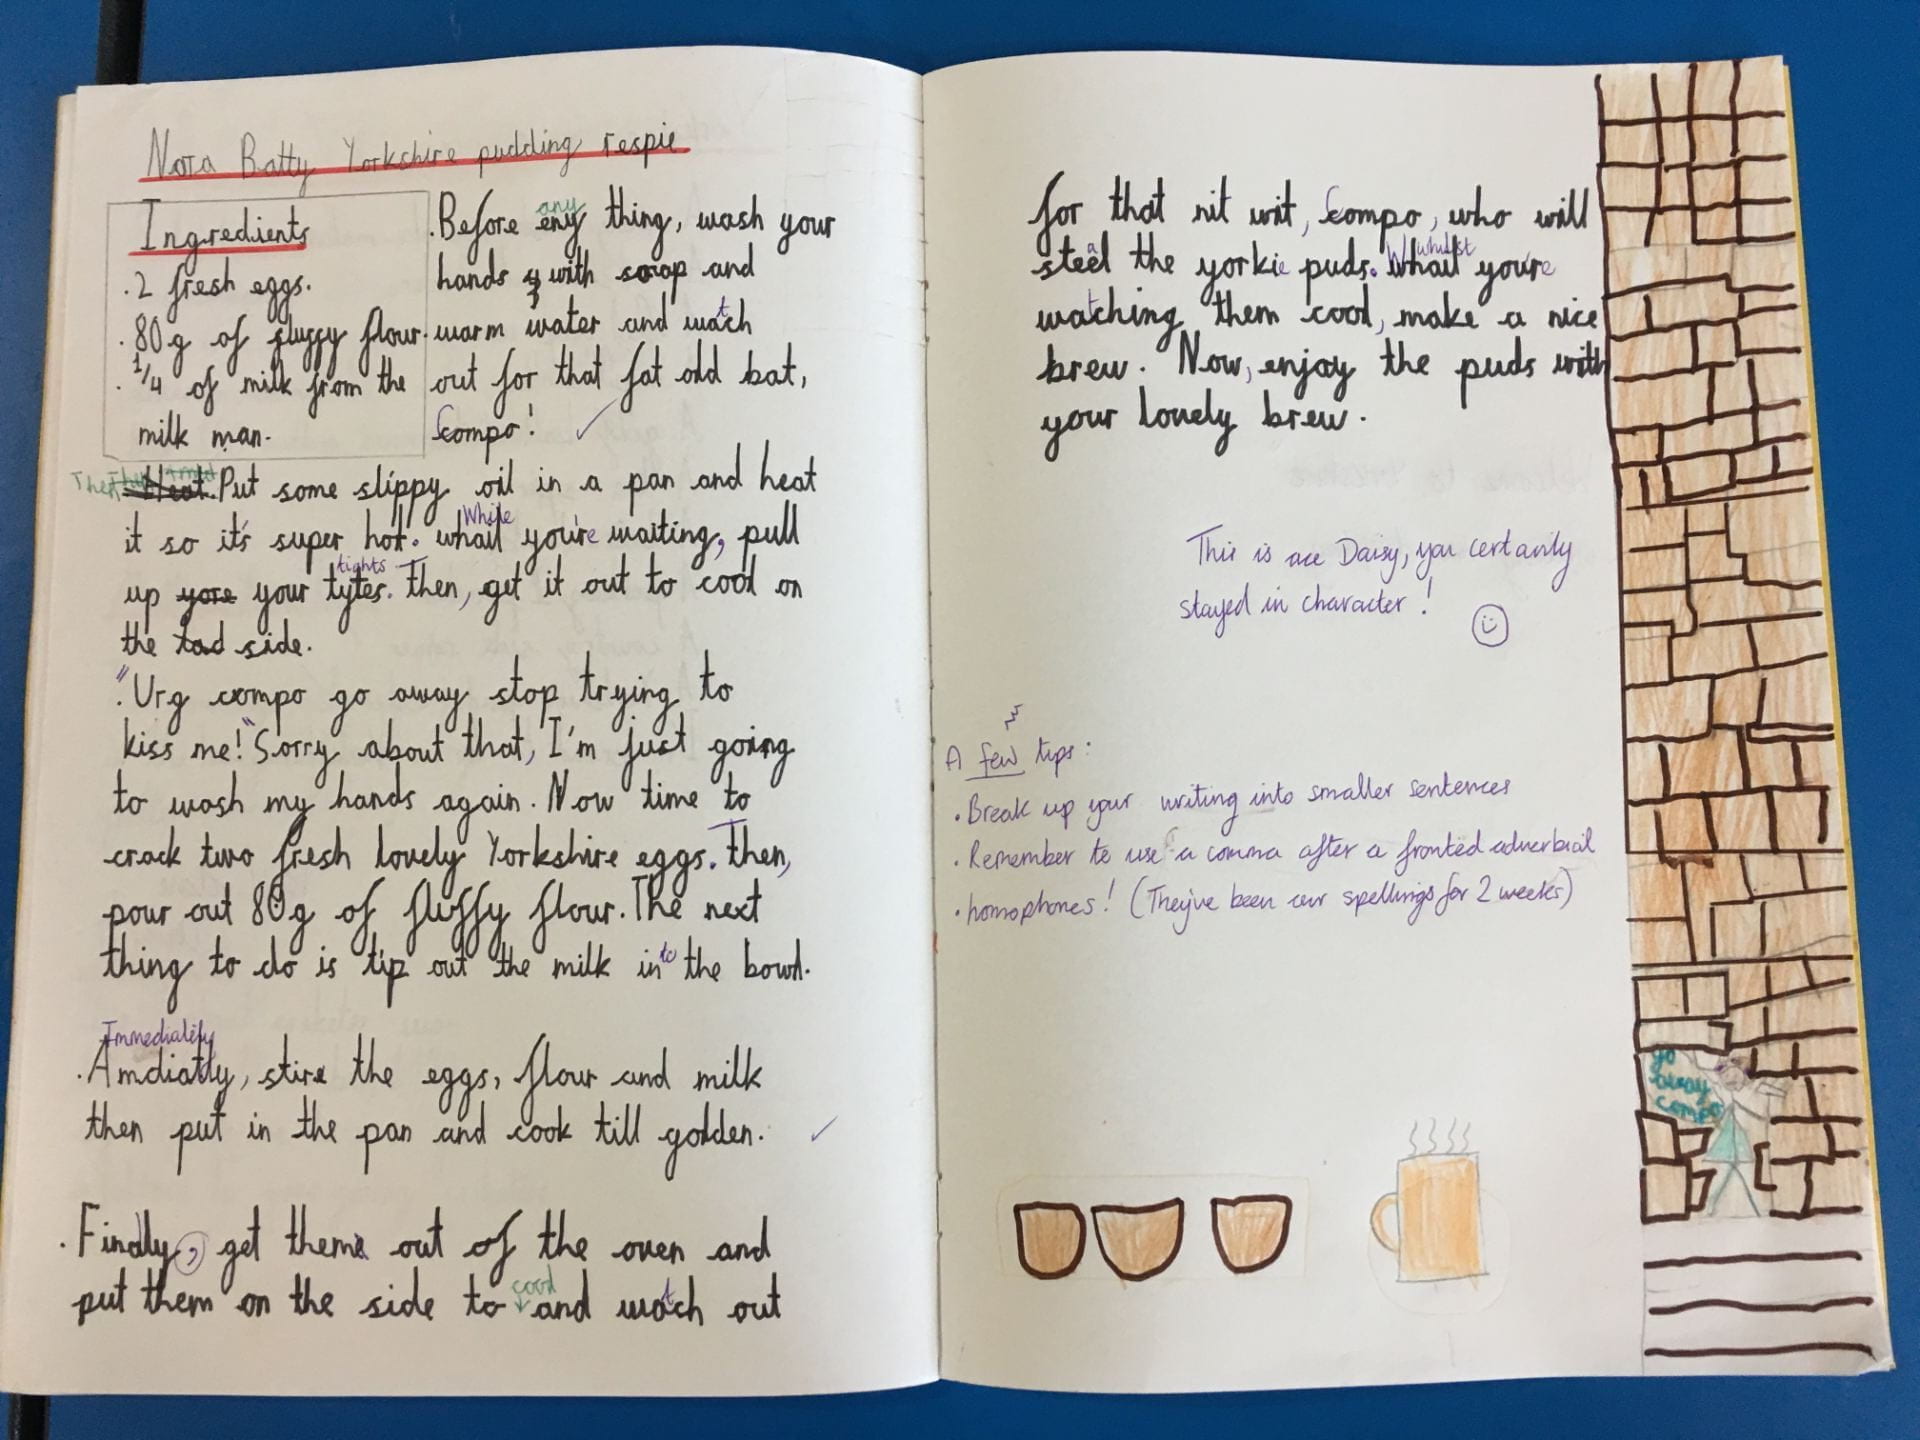 Nora Batty Yorkshire pudding respie
Ingredients
. 2 fresh eggs.
. 80g of fluffy flour.
. 1/4 of milk from the
milk man.
any
.Before eny thing, wash your
hands with soap and
warm water and watch
out for that fat old bat,
Compo!
Then
Heat. Put some slippy oil in a pan and heat
While
it so it's super hot. whail you're waiting, pull
tights
up yore your tytes. Then, get it out to cool on
the tad side.
"Urg compo go away stop trying to
kiss me!" Sorry about that, I'm just going
to wash my hands again. Now time to
crack two fresh lovely Yorkshire eggs. Then,
pour out 80g of fluffy flour. The next
thing to do is tip out the milk into the bowl.
Immediately
.Amdiatly, stire the eggs, flour and milk
then put in the pan and cook till golden.
. Finally, get them out of the oven and
cool
put them on the side to and watch out
for that nit wit, Compo, who will
a whilst
steel the yorkie puds. Whail you're
watching them cool, make a nice
brew. Now, enjoy the puds with
your lovely brew.
This is ace Daisy, you certainly
stayed in character!
A few tips:
. Break up your writing into smaller sentences
. Remember to use a comma after a fronted adverbial
. homophones! (They've been our spellings for 2 weeks)
go
away
compo